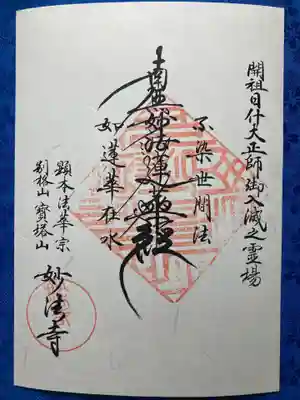 開祖日什大正師御入滅之霊場
不染世間法
南無妙法蓮華経
如蓮華在水
顕本法華宗
別格山 寳塔山
妙法寺